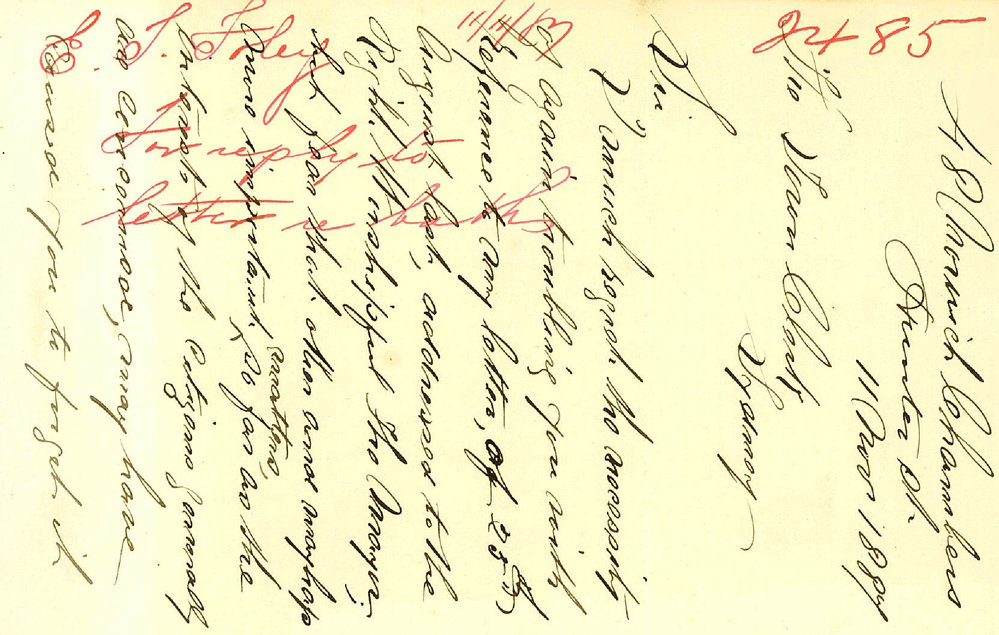 48 Norwich Chambers
Hunter St.
11 Nov 1887
The Town Clerk
Sydney
Sir
I much regret the necessity
of again troubling you with
reference to my letter, of 25th
August last, addressed to the
Right Worshipful the Mayor,
but fear that other and mayhap
more important matters, so far as the
interests of the citizens generally
are concerned, may have
caused you to forget it
2485
11/11/87
E. J. Foley
For reply to
letter re baths